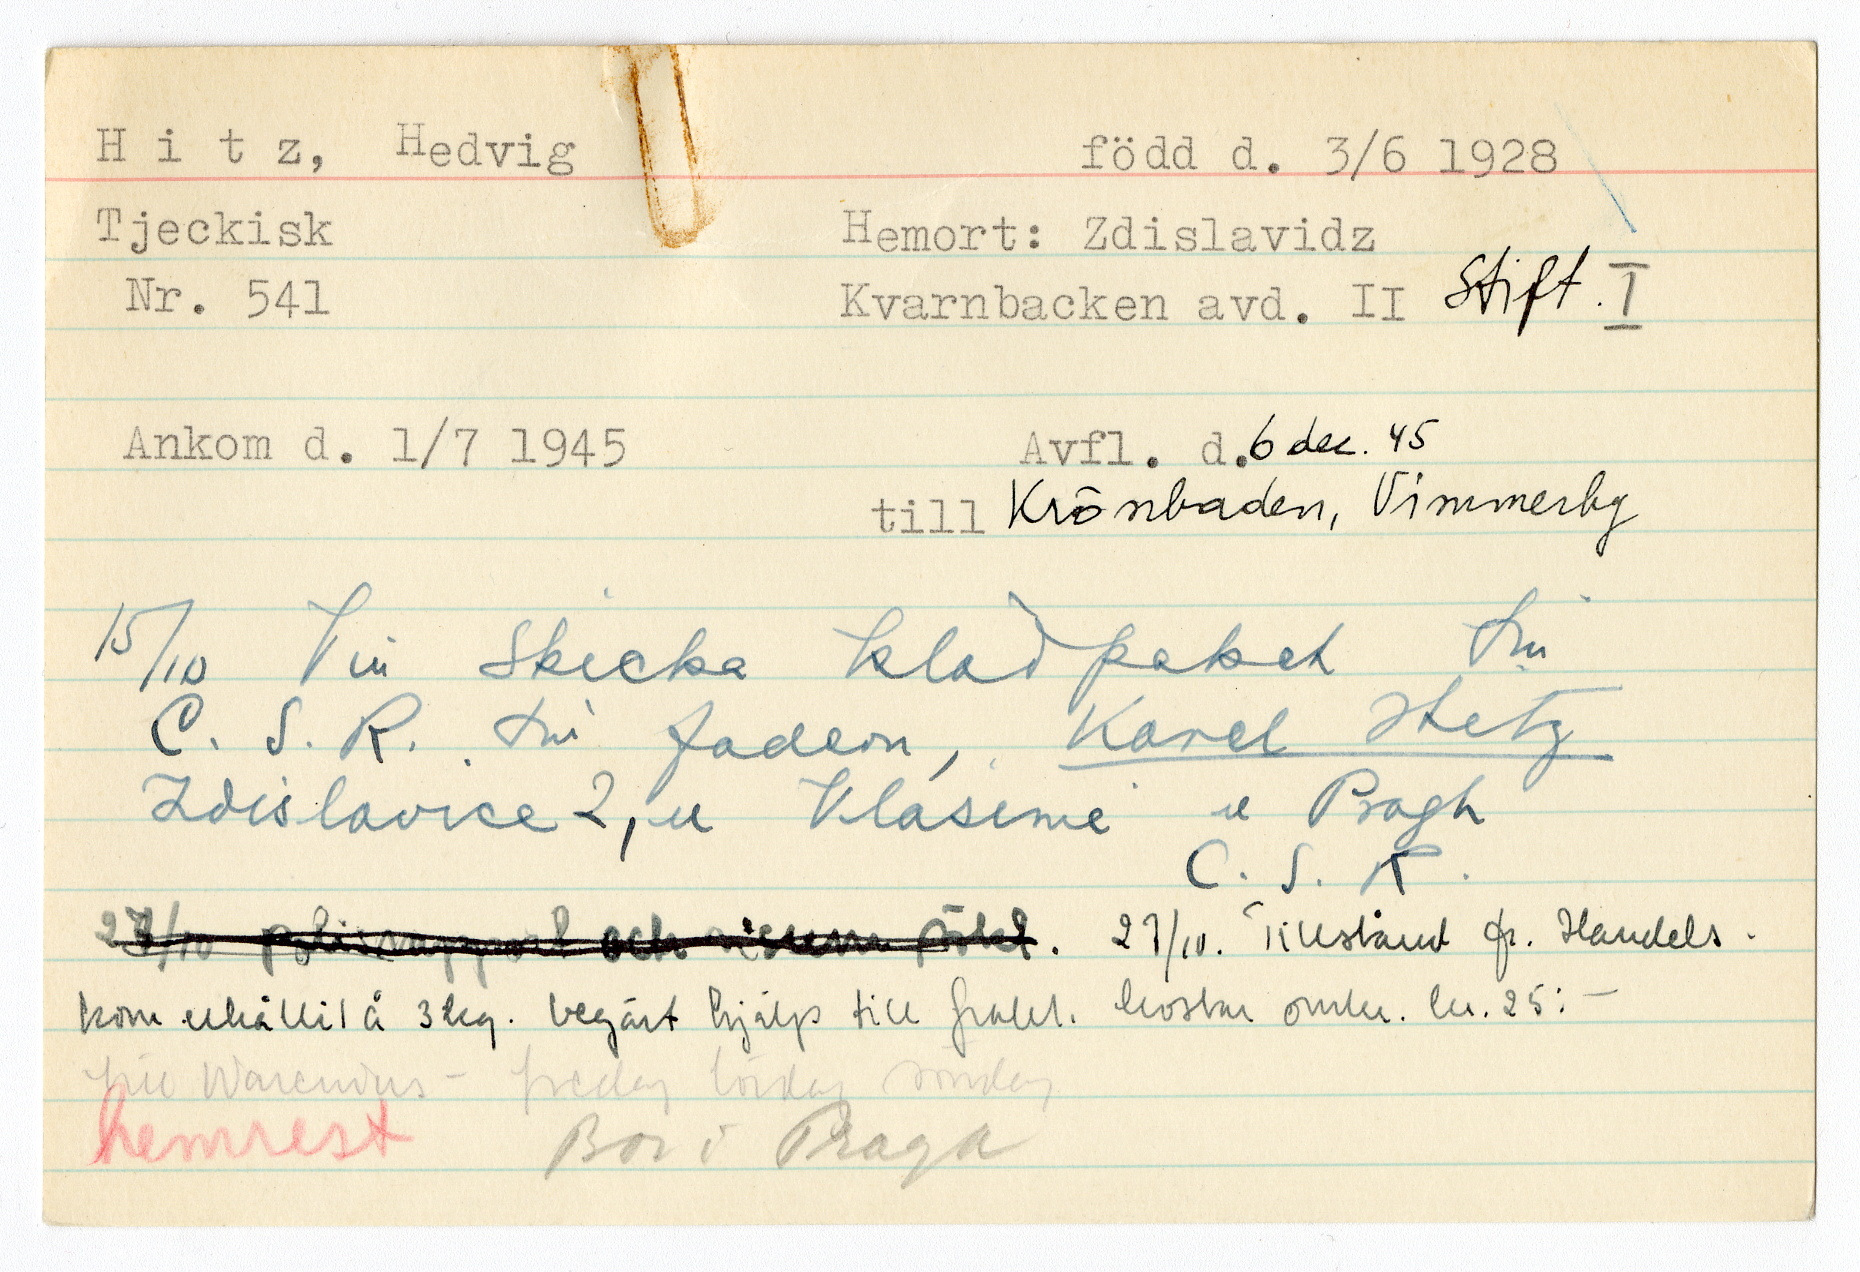 H i t z, Hedvig född d. 3/6 1928
Tjeckisk Hemort: Zdislavidz
Nr. 541 Kvarnbacken avd. II Stift. I
Ankom d. 1/7 1945 Avfl. d. 6 dec. 45
till Krönbaden, Vimmerby
15/10 Vill skicka klädpaket till
C. S. R. till fadern, Karel Hetz
Zdislavice 2, u Vlasimi u Pragh
C. S. R.
27/10 polisrapport och visum sökt. 27/10. Tillstånd fr. Handels-
kom erhållit å 3 kg. begärt hjälp till frakt. kostar omkr. kr. 25:-
Warendus - fredag lördag söndag
hemrest Bor i Praga